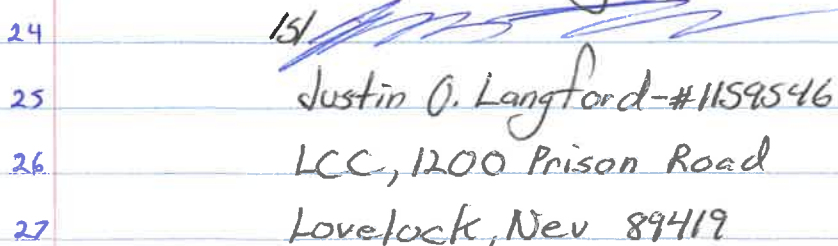 24 /s/
25 Justin O. Langford-#1159546
26 LCC, 1200 Prison Road
27 Lovelock, Nev 89419